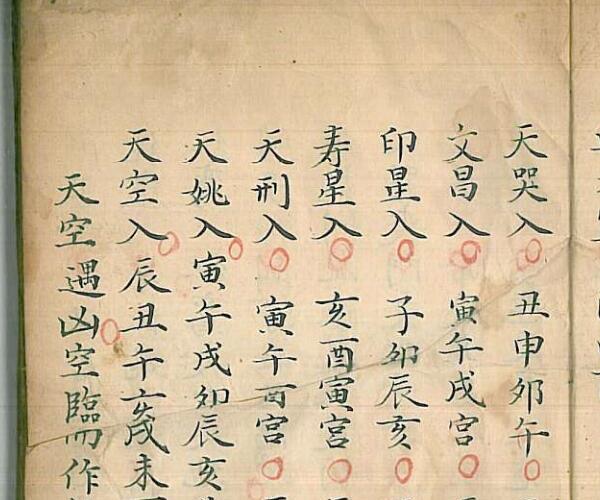 天哭入丑申卯午
文昌入寅午戌宮
印星入子卯辰亥
寿星入亥酉寅宮
天刑入寅午酉宮
天姚入寅午戌卯辰亥
天空入辰丑午亥戌未
天空遇凶空臨而作